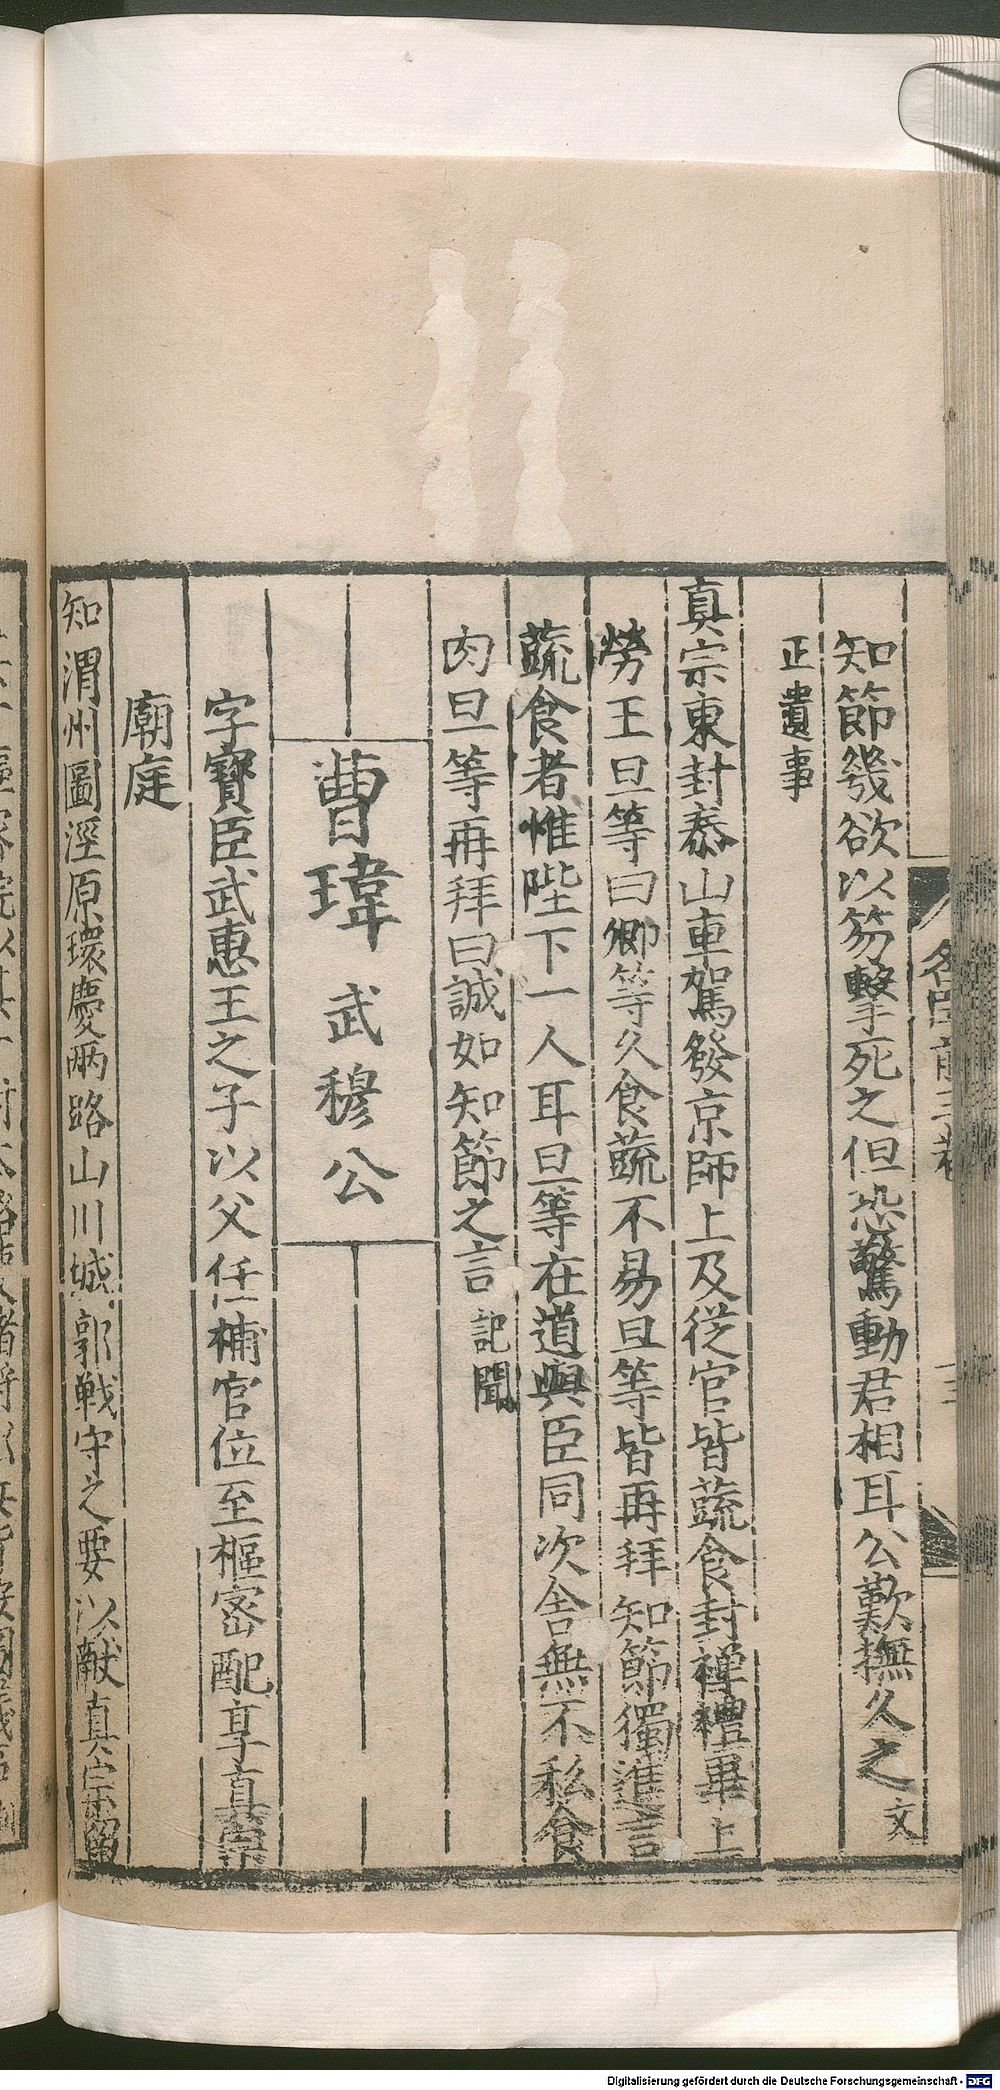 知節㡬欲以笏擊死之但恐驚動君相耳公歎撫久之文
正遺事
真宗東封泰山車駕發京師上及從官皆蔬食封禅禮畢上
勞王旦等曰卿等久食蔬不易旦等皆再拜知節獨進言
蔬食者惟陛下一人耳旦等在道與臣同次舍無不私食
肉旦等再拜曰誠如知節之言記聞
曹瑋武穆公
字寶臣武惠王之子以父任補官位至樞密配享真宗
廟庭
知渭州圖涇原環慶兩路山川城郭戦守之要以献真宗留
Digitalisierung gefördert durch die Deutsche Forschungsgemeinschaft - DFG